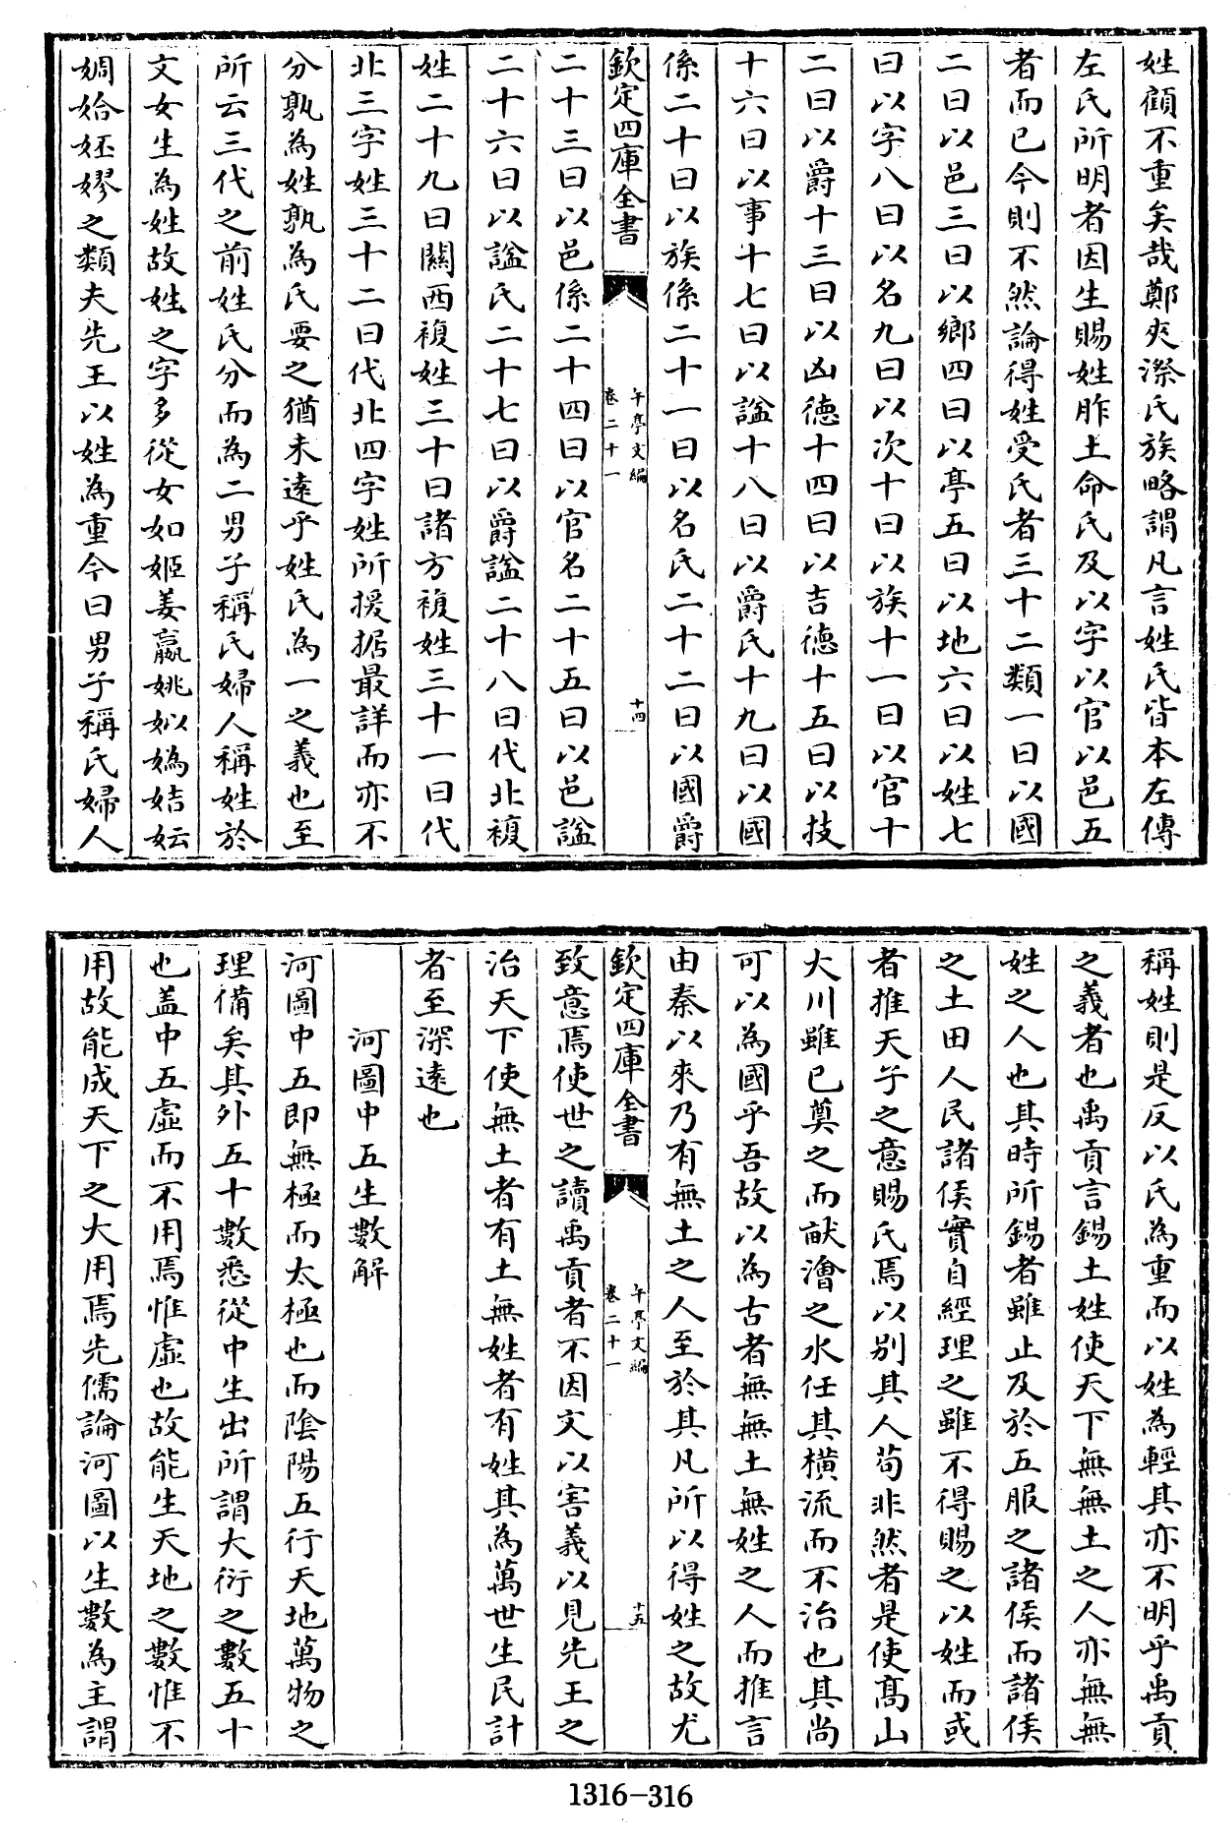 姓顧不重矣哉鄭夾漈氏族略謂凡言姓氏皆本左傳
左氏所明者因生賜姓胙土命氏及以字以官以邑五
者而已今則不然論得姓受氏者三十二類一曰以國
二曰以邑三曰以鄉四曰以亭五曰以地六曰以姓七
曰以字八曰以名九曰以次十曰以族十一曰以官十
二曰以爵十三曰以凶徳十四曰以吉徳十五曰以技
十六曰以事十七曰以諡十八曰以爵氏十九曰以國
係二十曰以族係二十一曰以名氏二十二曰以國爵
欽定四庫全書
午亭文編
卷二十一
十四
二十三曰以邑係二十四曰以官名二十五曰以邑諡
二十六曰以諡氏二十七曰以爵諡二十八曰代北複
姓二十九曰關西複姓三十曰諸方複姓三十一曰代
北三字姓三十二曰代北四字姓所援据最詳而亦不
分孰為姓孰為氏要之猶未遠乎姓氏為一之義也至
所云三代之前姓氏分而為二男子稱氏婦人稱姓於
文女生為姓故姓之字多從女如姬姜嬴姚姒媯姞妘
婤姶㚰嫪之類夫先王以姓為重今曰男子稱氏婦人
稱姓則是反以氏為重而以姓為輕其亦不明乎禹貢
之義者也禹貢言錫土姓使天下無無土之人亦無無
姓之人也其時所錫者雖止及於五服之諸侯而諸侯
之土田人民諸侯實自經理之雖不得賜之以姓而或
者推天子之意賜氏焉以别其人苟非然者是使髙山
大川雖已奠之而畎澮之水任其橫流而不治也其尚
可以為國乎吾故以為古者無無土無姓之人而推言
由秦以來乃有無土之人至於其凡所以得姓之故尤
欽定四庫全書
午亭文編
卷二十一
十五
致意焉使世之讀禹貢者不因文以害義以見先王之
治天下使無土者有土無姓者有姓其為萬世生民計
者至深遠也
河圖中五生數解
河圖中五即無極而太極也而陰陽五行天地萬物之
理備矣其外五十數悉從中生出所謂大衍之數五十
也盖中五虛而不用焉惟虛也故能生天地之數惟不
用故能成天下之大用焉先儒論河圖以生數為主謂
1316-316